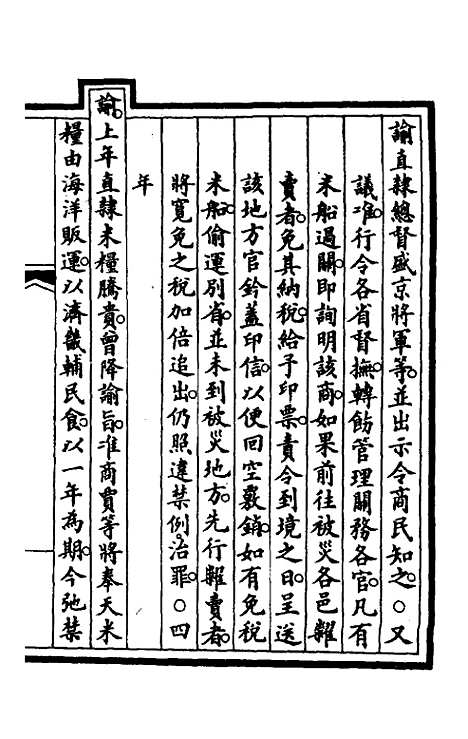 諭直隸總督盛京將軍等並出示令商民知之○又
議准行令各省督撫轉飭管理關務各官凡有
米船過關即詢明該商如果前往被災各邑糶
賣者免其納稅給予印票責令到境之日呈送
該地方官鈐蓋印信以便回空覈銷如有免稅
米船偷運別省並未到被災地方先行糶賣者
將寬免之稅加倍追出仍照違禁例治罪○四
年
諭上年直隸米糧騰貴曾降諭旨准商賈等將奉天米
糧由海洋販運以濟畿輔民食以一年為期今弛禁